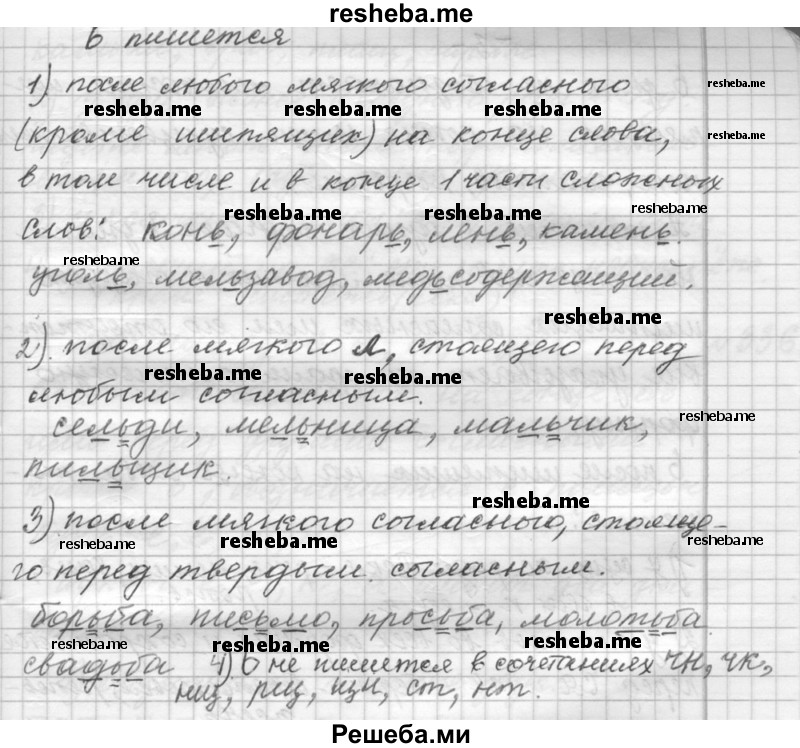 resheba.me
ь пишется
1) после любого мягкого согласного
resheba.me
resheba.me resheba.me resheba.me
(кроме шипящих) на конце слова,
resheba.me
в том числе и в конце 1 части сложных
resheba.me resheba.me resheba.me
слов: конь, фонарь, лень, камень.
resheba.me
уголь, мельзавод, медьсодержащий.
resheba.me
2). после мягкого л, стоящего перед
resheba.me resheba.me
любым согласным.
resheba.me
сельди, мельница, мальчик,
пильщик.
resheba.me
3) после мягкого согласного, стояще-
resheba.me resheba.me
го перед твердым согласным.
борьба, письмо, просьба, молотьба
resheba.me resheba.me resheba.me
свадьба 4) Ь не пишется в сочетаниях чн, чк,
нщ, рщ, щн, ст, нт.
Решеба.ми